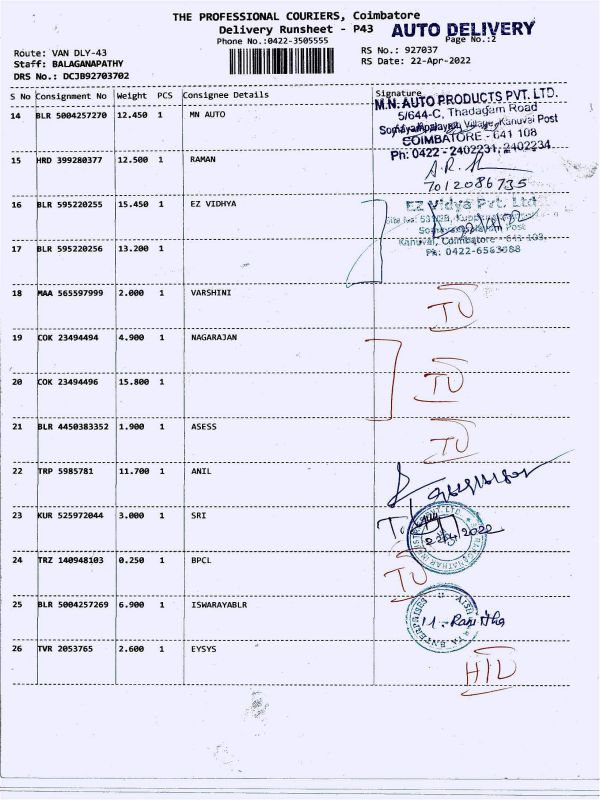 THE PROFESSIONAL COURIERS, Coimbatore
Delivery Runsheet - P43
AUTO DELIVERY
Phone No.:0422-3505555
Page No.:2
Route: VAN DLY-43
RS No.: 927037
Staff: BALAGANAPATHY
RS Date: 22-Apr-2022
DRS No.: DCJB92703702
S No Consignment No Weight PCS Consignee Details Signature
M.N. AUTO PRODUCTS PVT. LTD.
14 BLR 5004257270 12.450 1 MN AUTO
5/644-C, Thadagam Road
Somayampalayam Village, Kanuvai Post
COIMBATORE - 641 108
Ph: 0422 - 2402231, 2402234
15 HRD 399280377 12.500 1 RAMAN
7012086735
16 BLR 595220255 15.450 1 EZ VIDHYA
EZ Vidya Pvt. Ltd
Somayampalayam Post
17 BLR 595220256 13.200 1
Kanuvai, Coimbatore - 641 108.
Ph: 0422-6563088
18 MAA 565597999 2.000 1 VARSHINI
TU
19 COK 23494494 4.900 1 NAGARAJAN
20 COK 23494496 15.800 1
TU
21 BLR 4450383352 1.900 1 ASESS
TU
22 TRP 5985781 11.700 1 ANIL
23 KUR 525972044 3.000 1 SRI
22/04/2022
24 TRZ 140948103 0.250 1 BPCL
TU
25 BLR 5004257269 6.900 1 ISWARAYABLR
M. Ranjitha
26 TVR 2053765 2.600 1 EYSYS
HTD